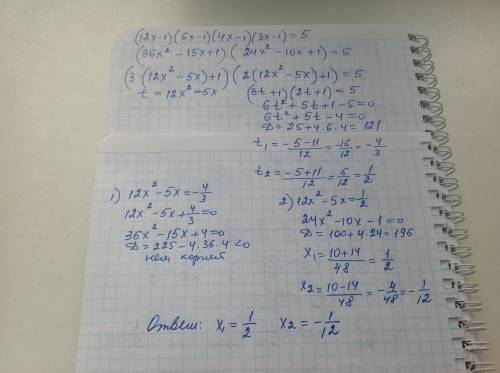 (12x-1)(6x-1)(4x-1)(3x-1)=5
(36x²-15x+1)(24x²-10x+1)=5
(3·(12x²-5x)+1)(2(12x²-5x)+1)=5
t=12x²-5x
(3t+1)(2t+1)=5
6t²+5t+1-5=0
6t²+5t-4=0
D=25+4·6·4=121
t₁=(-5-11)/12=-16/12=-4/3
t₂=(-5+11)/12=6/12=1/2
1) 12x²-5x=-4/3
12x²-5x+4/3=0
36x²-15x+4=0
D=225-4·36·4<0
нет корней
2) 12x²-5x=1/2
24x²-10x-1=0
D=100+4·24=196
x₁=(10+14)/48=1/2
x₂=(10-14)/48=-4/48=-1/12
Ответ: x₁=1/2 x₂=-1/12